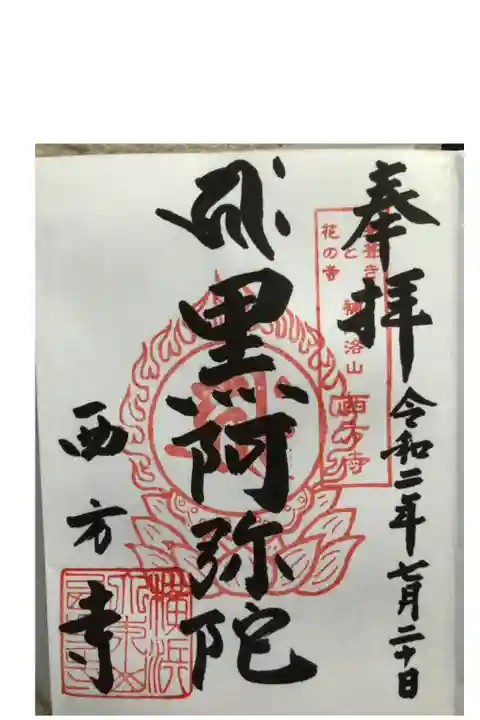 奉拝
令和二年七月二十日
花の寺
西方寺
黒阿弥陀
西方寺
横浜